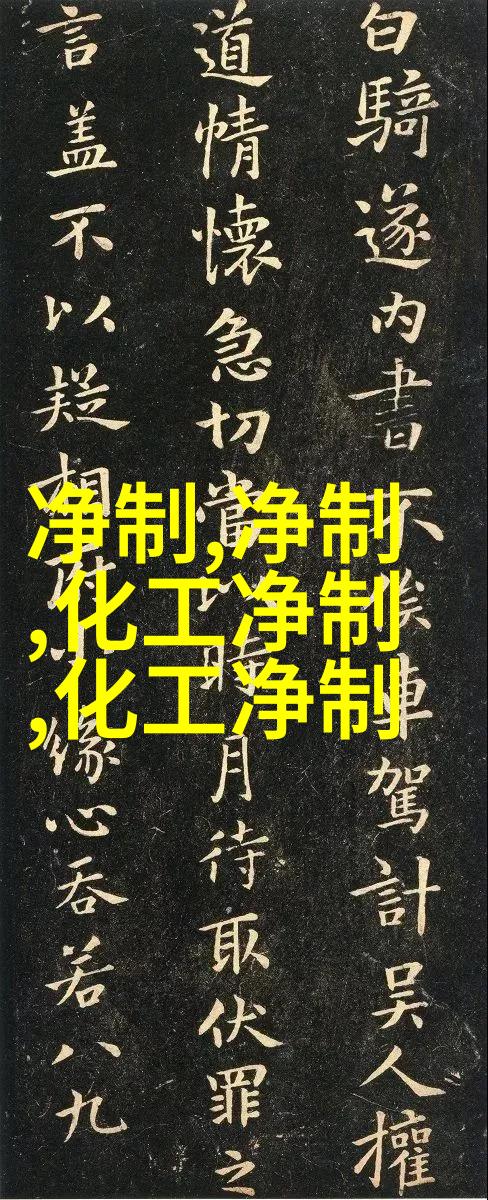 白騎遂内書不俟車駕計吴人擁
道情懷急切當時月待取伏罪之
言盖不以疑相緣心吞若八九
净制,净制
,化工净制
,化工净制